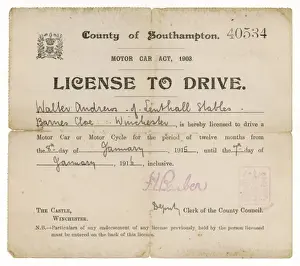 County of Southampton. 40534
MOTOR CAR ACT, 1903
LICENSE TO DRIVE.
Walter Andrews of Lenthall Stables
Barnes Close Winchester, is hereby licensed to drive a
Motor Car or Motor Cycle for the period of twelve months from
the 8th day of January, 1915 until the 7th day of
January, 1916, inclusive.
Deputy Clerk of the County Council.
THE CASTLE,
WINCHESTER.
N.B.—Particulars of any endorsement of any license previously held by the person licensed
must be entered on the back of this license.